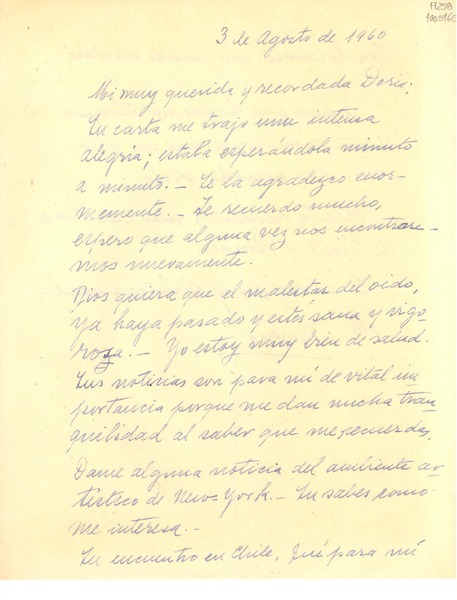 17258
3 de Agosto de 1960
Mi muy querida y recordada Doris;
Tu carta me trajo una intensa
alegría; estaba esperándola minuto
a minuto. — Te la agradezco enor-
memente. — Te recuerdo mucho,
espero que alguna vez nos encontrare-
mos nuevamente.
Dios quiera que el malestar del oido,
ya haya pasado y estés sana y vigo-
roza. — Yo estoy muy bien de salud.
Tus noticias son para mí de vital im
portancia porque me dan mucha tran-
quilidad al saber que me recuerdas.
Dame alguna noticia del ambiente ar-
tístico de New-York. — Tu sabes como
me interesa. —
Tu encuentro en Chile, fué para mí